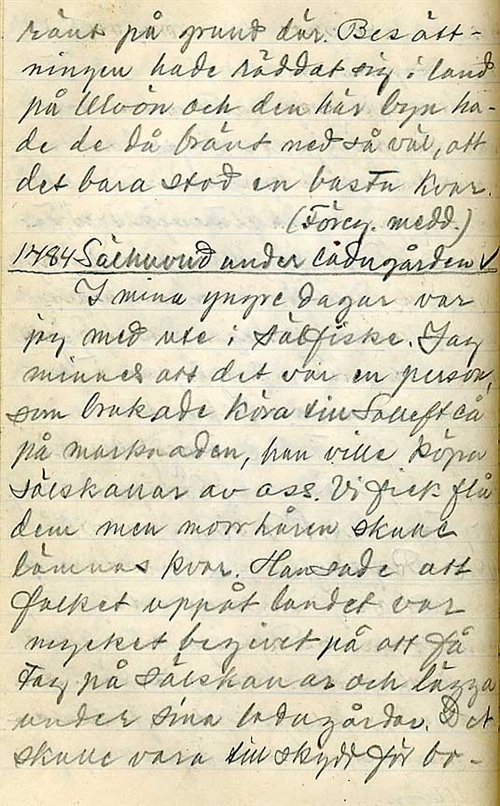 ränt på grund där. Besätt-
ningen hade räddat sig i land
på Ulvön och den här byn ha-
de de då bränt ned så väl, att
det bara stod en bastu kvar.
(Föreg. medd.)
1484 Sälhuvud under ladugården √
I mina yngre dagar var
jag med ute i sälfiske. Jag
minnes att det var en person,
som brukade köra till Sollefteå
på marknaden, han ville köpa
sälskallar av oss. Vi fick flå
dem men morrhåren skulle
lämnas kvar. Han sade att
folket uppåt landet var
mycket begivet på att få
tag på sälskallar och lägga
under sina ladugårdar. Det
skulle vara till skydd för bo-